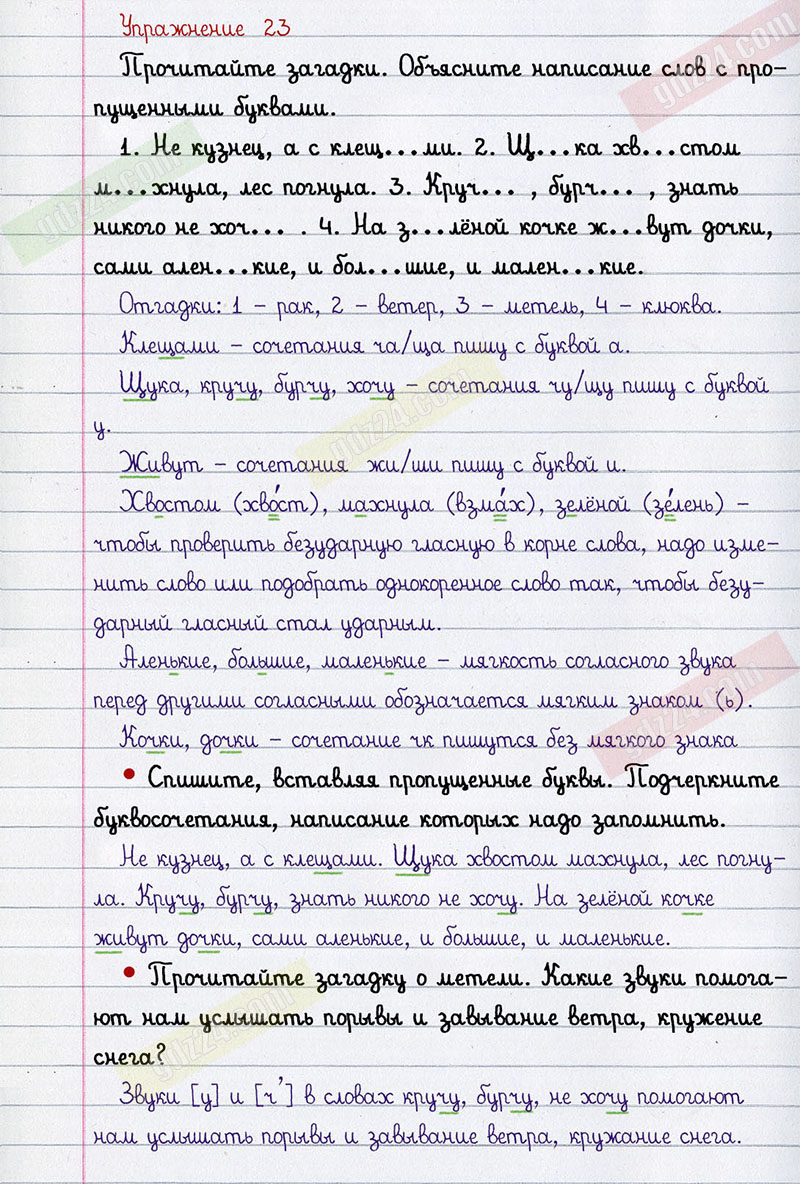 Упражнение 23
Прочитайте загадки. Объясните написание слов с про-
пущенными буквами.
1. Не кузнец, а с клещ...ми. 2. Щ...ка хв...стом
м...хнула, лес погнула. 3. Круч... , бурч... , знать
никого не хоч... . 4. На з...лёной кочке ж...вут дочки,
сами ален...кие, и бол...шие, и мален...кие.
Отгадки: 1 – рак, 2 – ветер, 3 – метель, 4 – клюква.
Клещами – сочетания ча/ща пишу с буквой а.
Щука, кручу, бурчу, хочу – сочетания чу/щу пишу с буквой
у.
Живут – сочетания жи/ши пишу с буквой и.
Хвостом (хво́ст), махнула (взма́х), зелёной (зе́лень) –
чтобы проверить безударную гласную в корне слова, надо изме-
нить слово или подобрать однокоренное слово так, чтобы безу-
дарный гласный стал ударным.
Аленькие, большие, маленькие – мягкость согласного звука
перед другими согласными обозначается мягким знаком (ь).
Кочки, дочки – сочетание чк пишутся без мягкого знака
• Спишите, вставляя пропущенные буквы. Подчеркните
буквосочетания, написание которых надо запомнить.
Не кузнец, а с клещами. Щука хвостом махнула, лес погну-
ла. Кручу, бурчу, знать никого не хочу. На зелёной кочке
живут дочки, сами аленькие, и большие, и маленькие.
• Прочитайте загадку о метели. Какие звуки помога-
ют нам услышать порывы и завывание ветра, кружение
снега?
Звуки [у] и [ч'] в словах кручу, бурчу, не хочу помогают
нам услышать порывы и завывание ветра, кружание снега.
gdz24.com
gdz24.com
gdz24.com
gdz24.com
gdz24.com